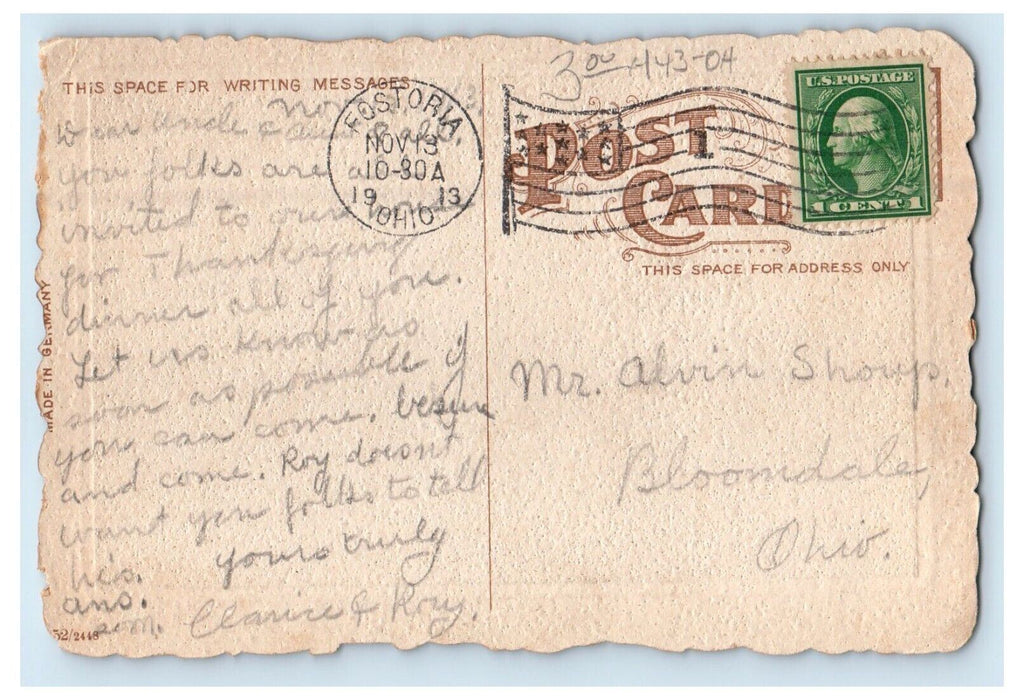 THIS SPACE FOR WRITING MESSAGES
Nov
Dear Uncle & Aunt
you folks are
invited to our
for Thanksgiving
dinner all of you.
Let us know as
soon as possible if
you can come, be sure
and come. Roy doesnt
want you folks to tell
his.
yours truly
ans.
Clarice & Roy.
52/2448
MADE IN GERMANY
FOSTORIA,
NOV 13
10-30A
1913
OHIO
3.00 A43-04
POST
CARD
1
U.S. POSTAGE
1 CENT 1
THIS SPACE FOR ADDRESS ONLY
Mr. Alvin Shoup,
Bloomdale,
Ohio.